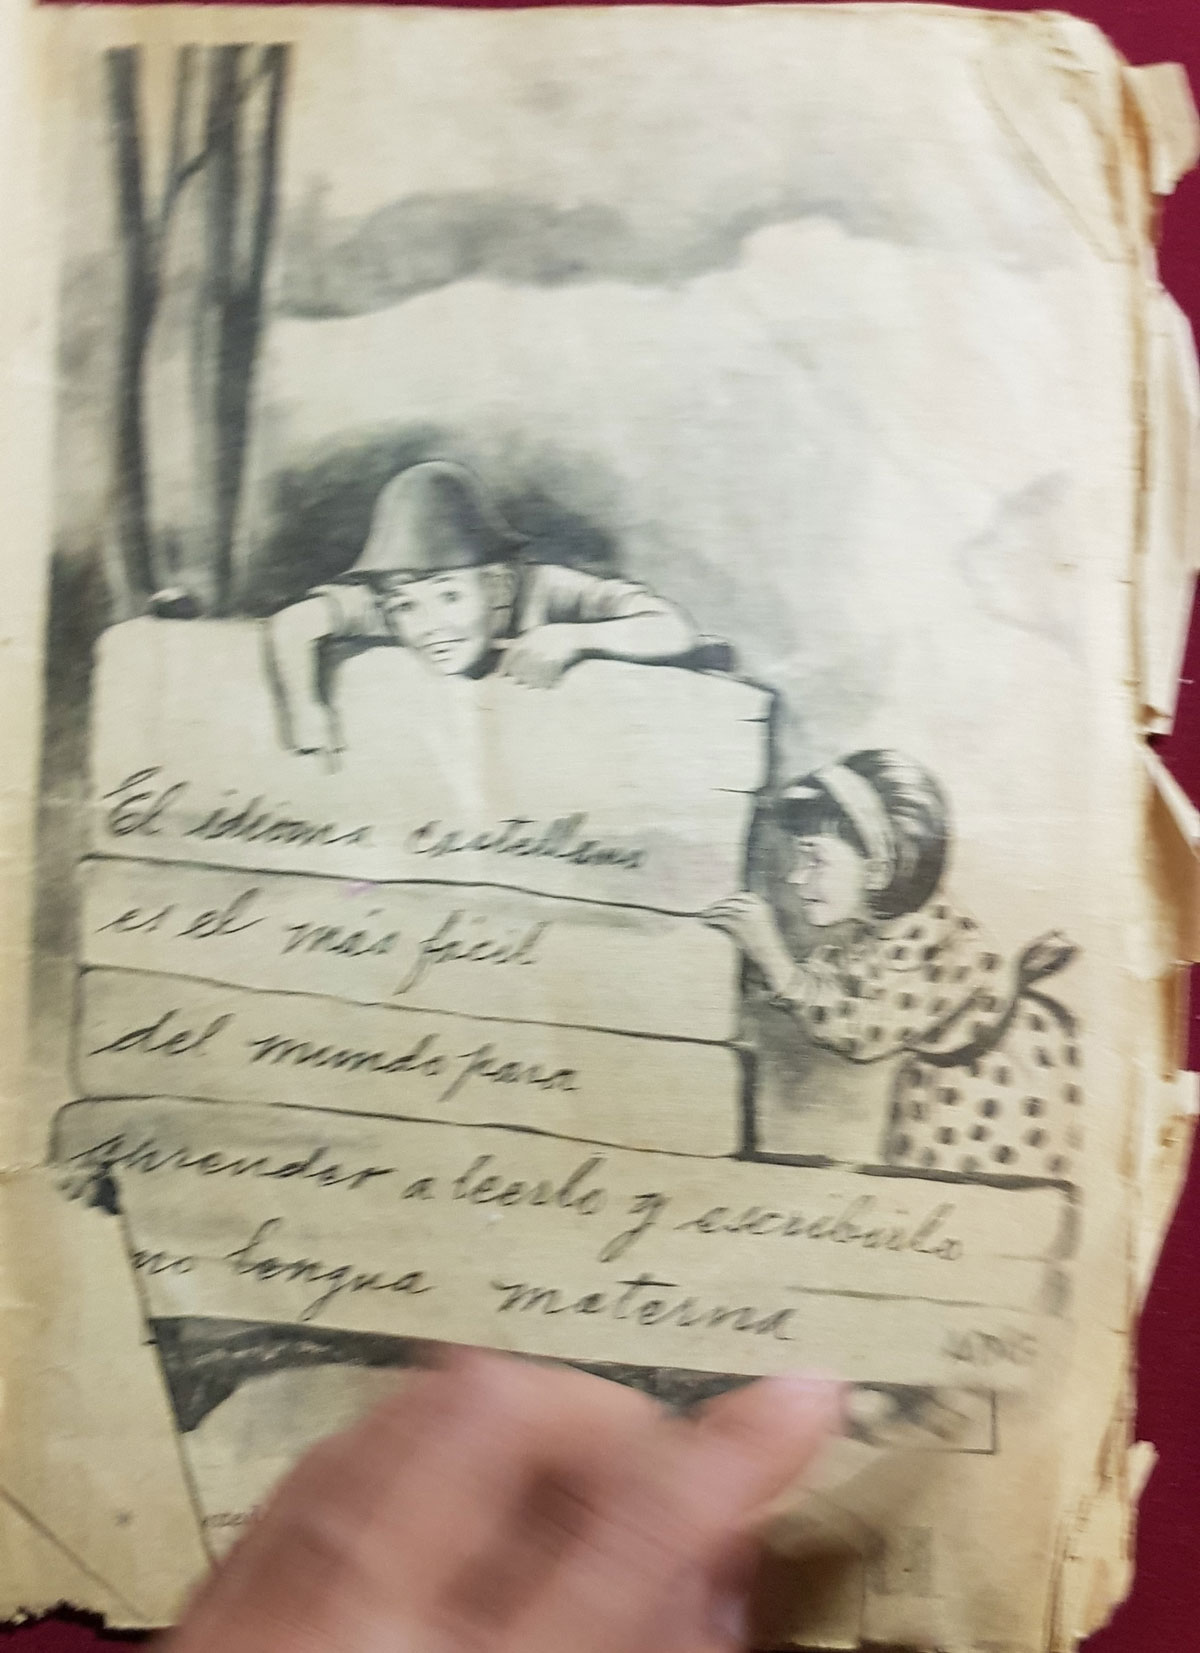 El idioma castellano
es el más fácil
del mundo para
aprender a leerlo y escribirlo
mo lengua materna